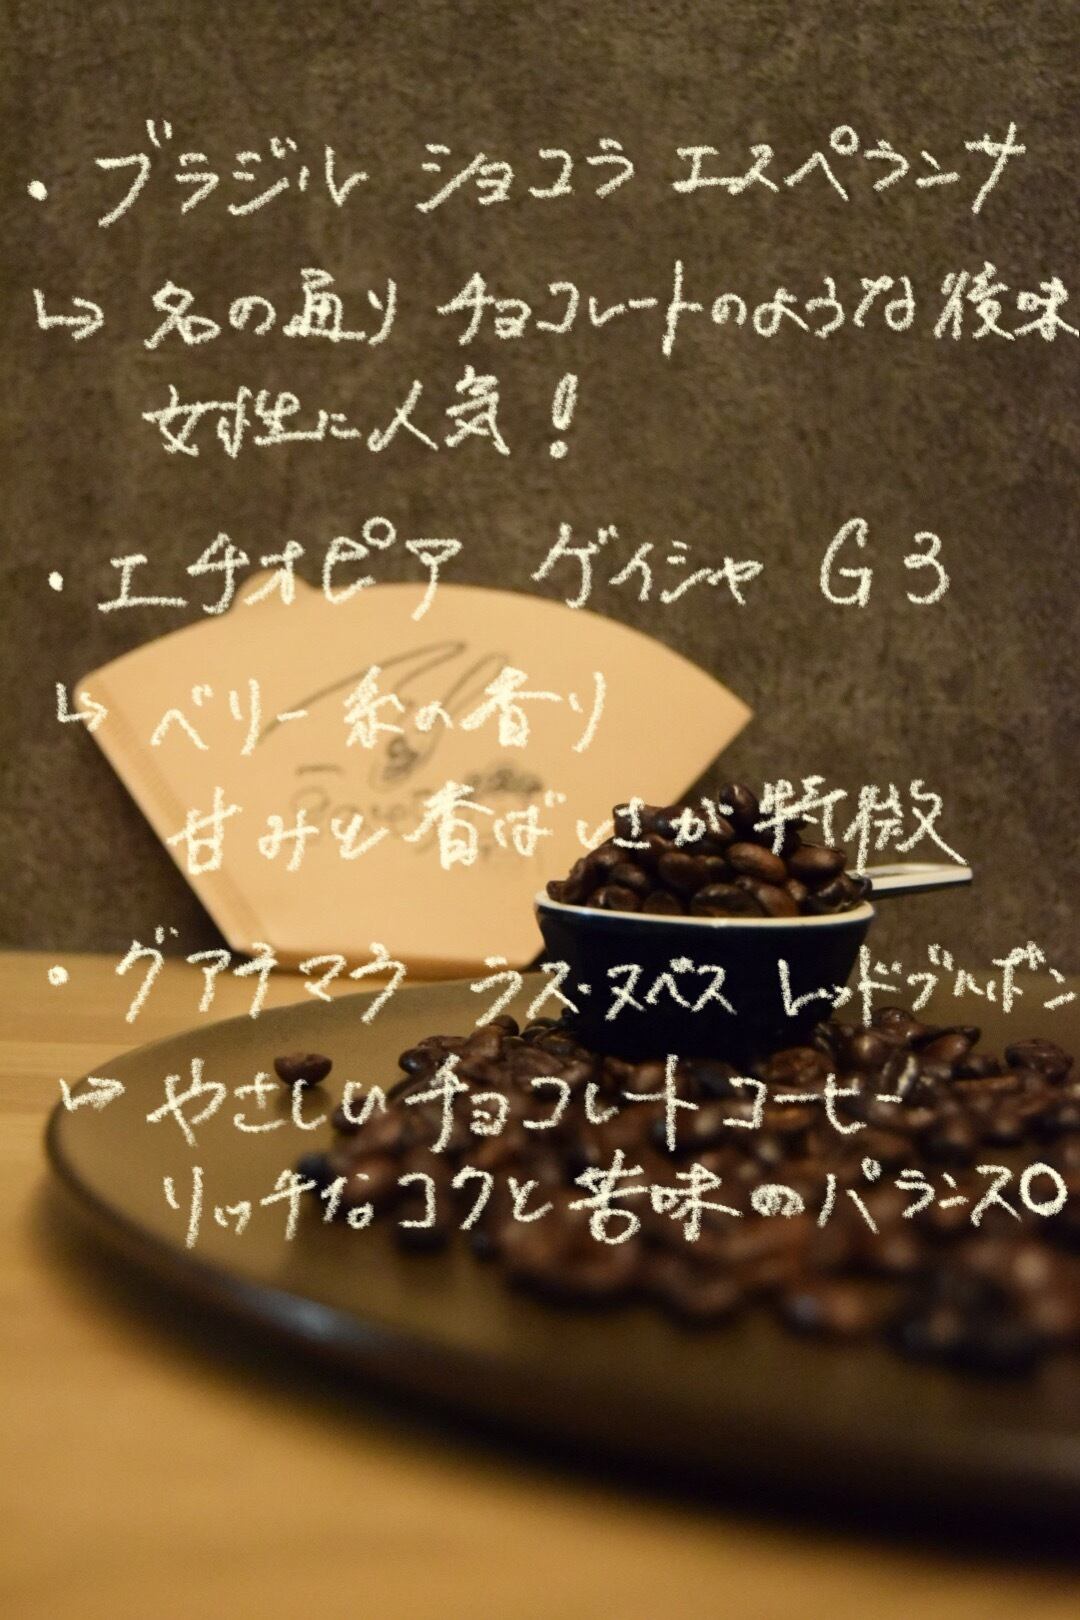 ・ブラジル ショコラ エスペランサ
↳ 名の通り チョコレートのような後味
女性に人気！
・エチオピア ゲイシャ G3
↳ ベリー系の香り
甘みと香ばしさが特徴
・グアテマラ ラス・ヌベス レッドブルボン
↳ やさしいチョコレートコーヒー
リッチなコクと苦味のバランス〇